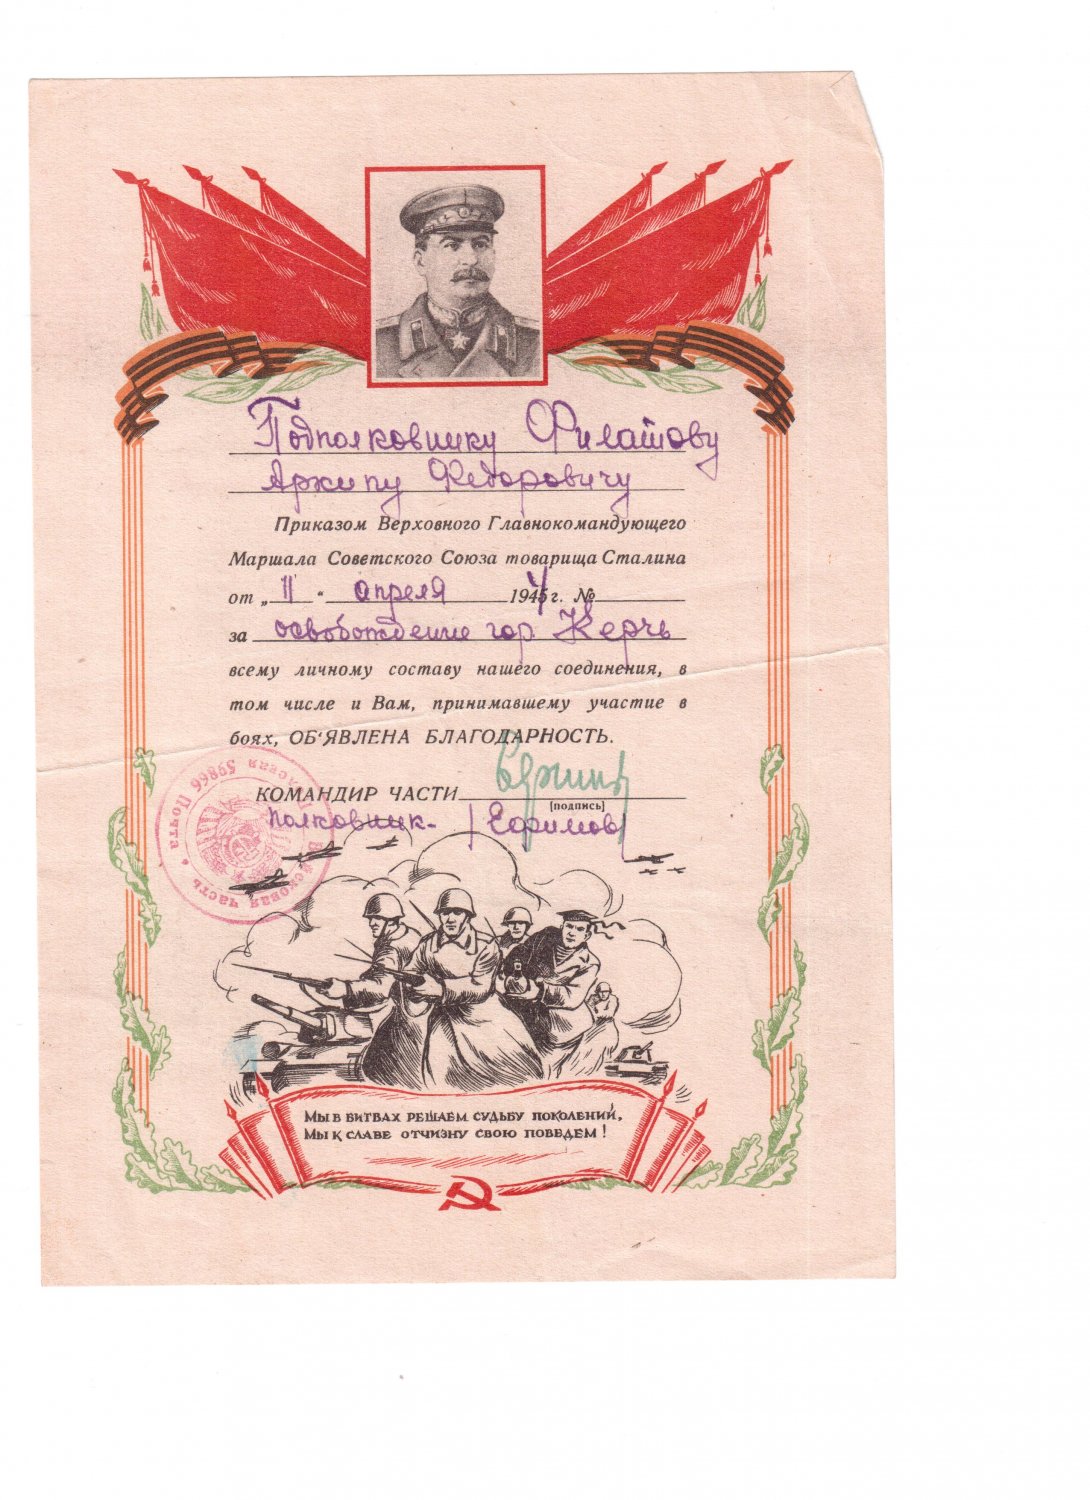 Подполковнику Филатову
Архипу Федоровичу
Приказом Верховного Главнокомандующего
Маршала Советского Союза товарища Сталина
от „11“ апреля 1944 г. №
за освобождение гор. Керчь
всему личному составу нашего соединения, в
том числе и Вам, принимавшему участие в
боях, ОБ‘ЯВЛЕНА БЛАГОДАРНОСТЬ.
КОМАНДИР ЧАСТИ
[подпись]
полковник- /Ефимов/
Полевая Почта 59866
Войсковая часть
МЫ В БИТВАХ РЕШАЕМ СУДЬБУ ПОКОЛЕНИЙ,
МЫ К СЛАВЕ ОТЧИЗНУ СВОЮ ПОВЕДЕМ!